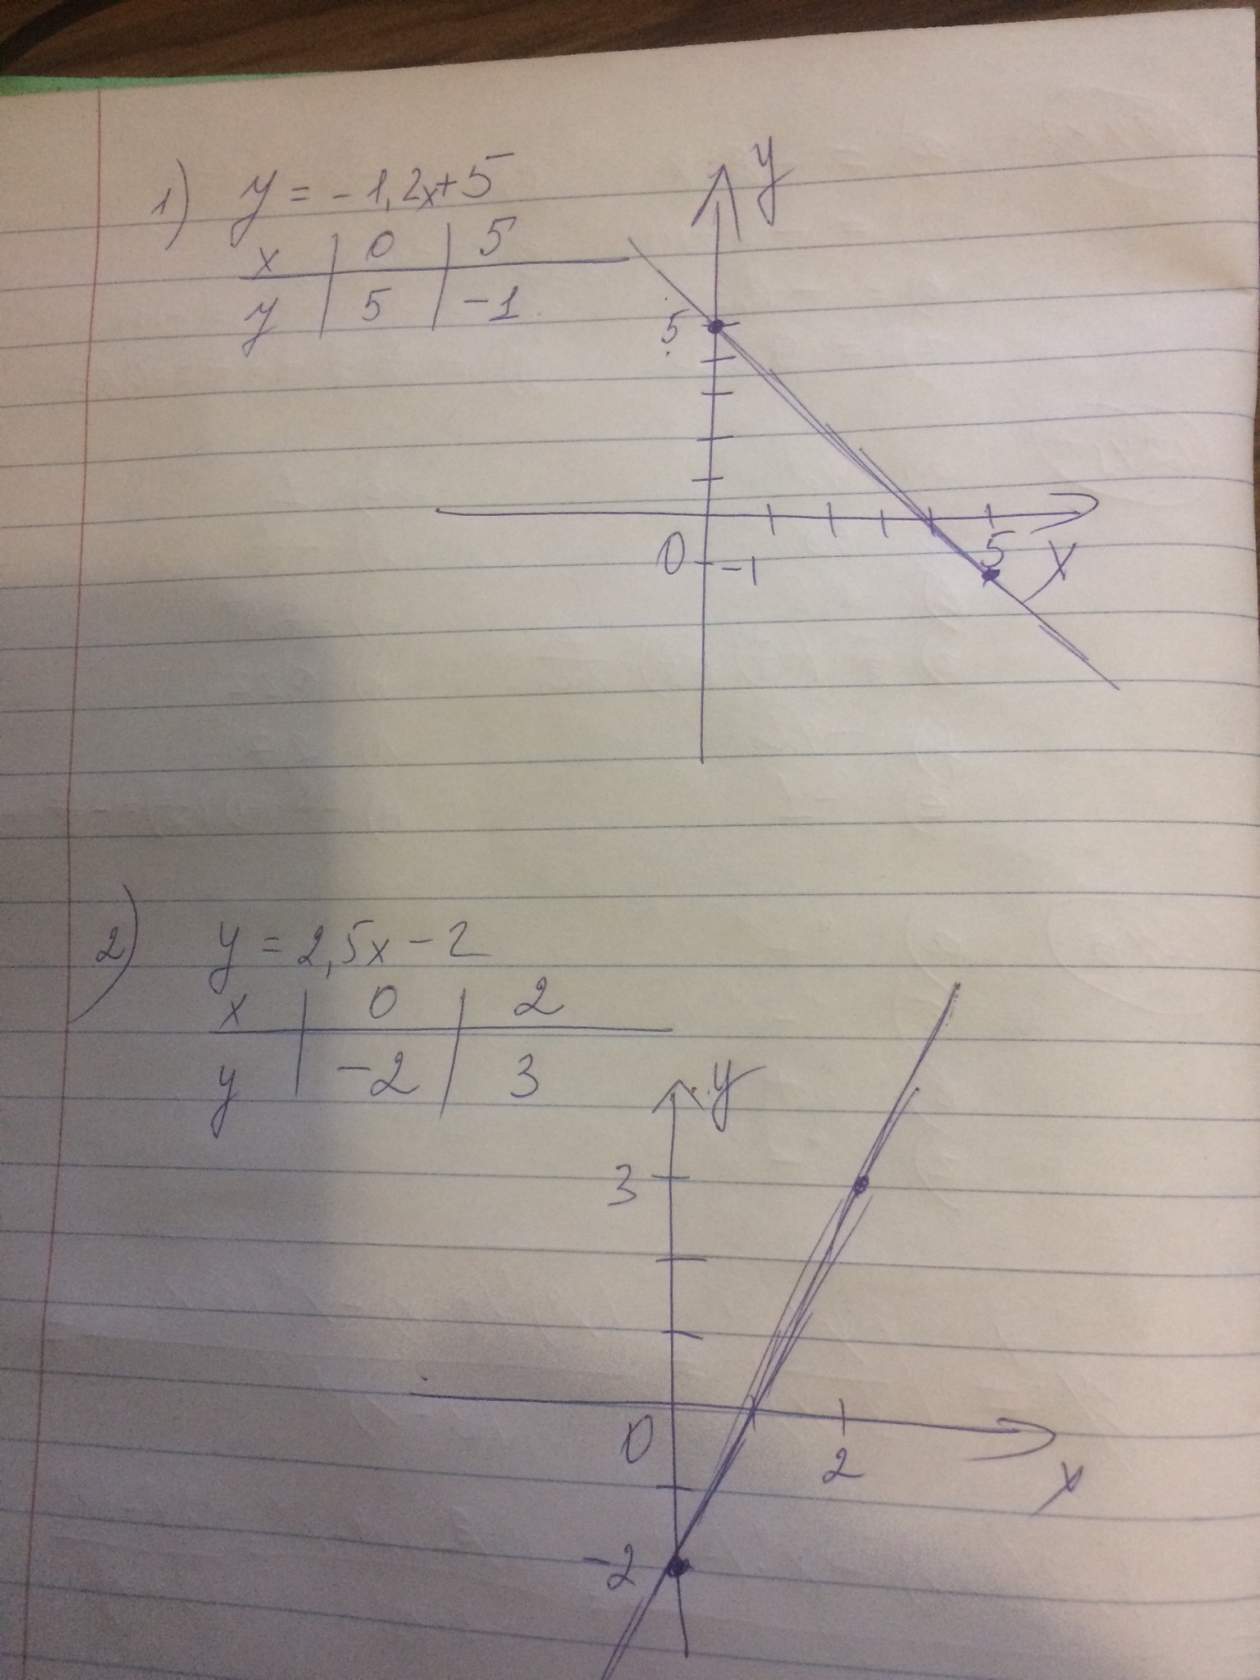 1) y = -1,2x+5
x | 0 | 5
y | 5 | -1
y
5
0 -1 5 x
2) y = 2,5x-2
x | 0 | 2
y | -2 | 3
y
3
0 2 x
-2